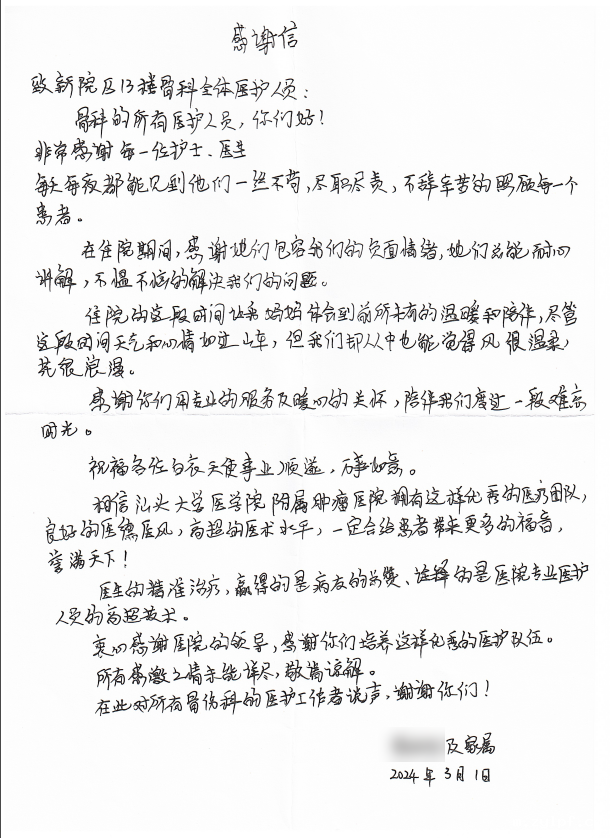 感谢信
致新院区13楼骨科全体医护人员:
骨科的所有医护人员,你们好!
非常感谢每一位护士、医生
每天每夜都能见到他们一丝不苟,尽职尽责,不辞辛苦的照顾每一个
患者。
在住院期间,感谢她们包容我们的负面情绪,她们总能耐心
讲解,不愠不恼的解决我们的问题。
住院的这段时间让我妈妈体会到前所未有的温暖和陪伴,尽管
这段时间天气和心情如过山车,但我们却从中也能觉得风很温柔,
花很浪漫。
感谢你们用专业的服务及暖心的关怀,陪伴我们度过一段难忘
时光。
祝福各位白衣天使事业顺遂,万事如意。
相信汕头大学医学院附属肿瘤医院拥有这样优秀的医疗团队,
良好的医德医风,高超的医术水平,一定会给患者带来更多的福音,
誉满天下!
医生的精准治疗,赢得的是病友的称赞、诠释的是医院专业医护
人员的高超技术。
衷心感谢医院的领导,感谢你们培养这样优秀的医护队伍。
所有感激之情未能详尽,敬请谅解。
在此对所有骨伤科的医护工作者说声,谢谢你们!
及家属
2024年3月1日